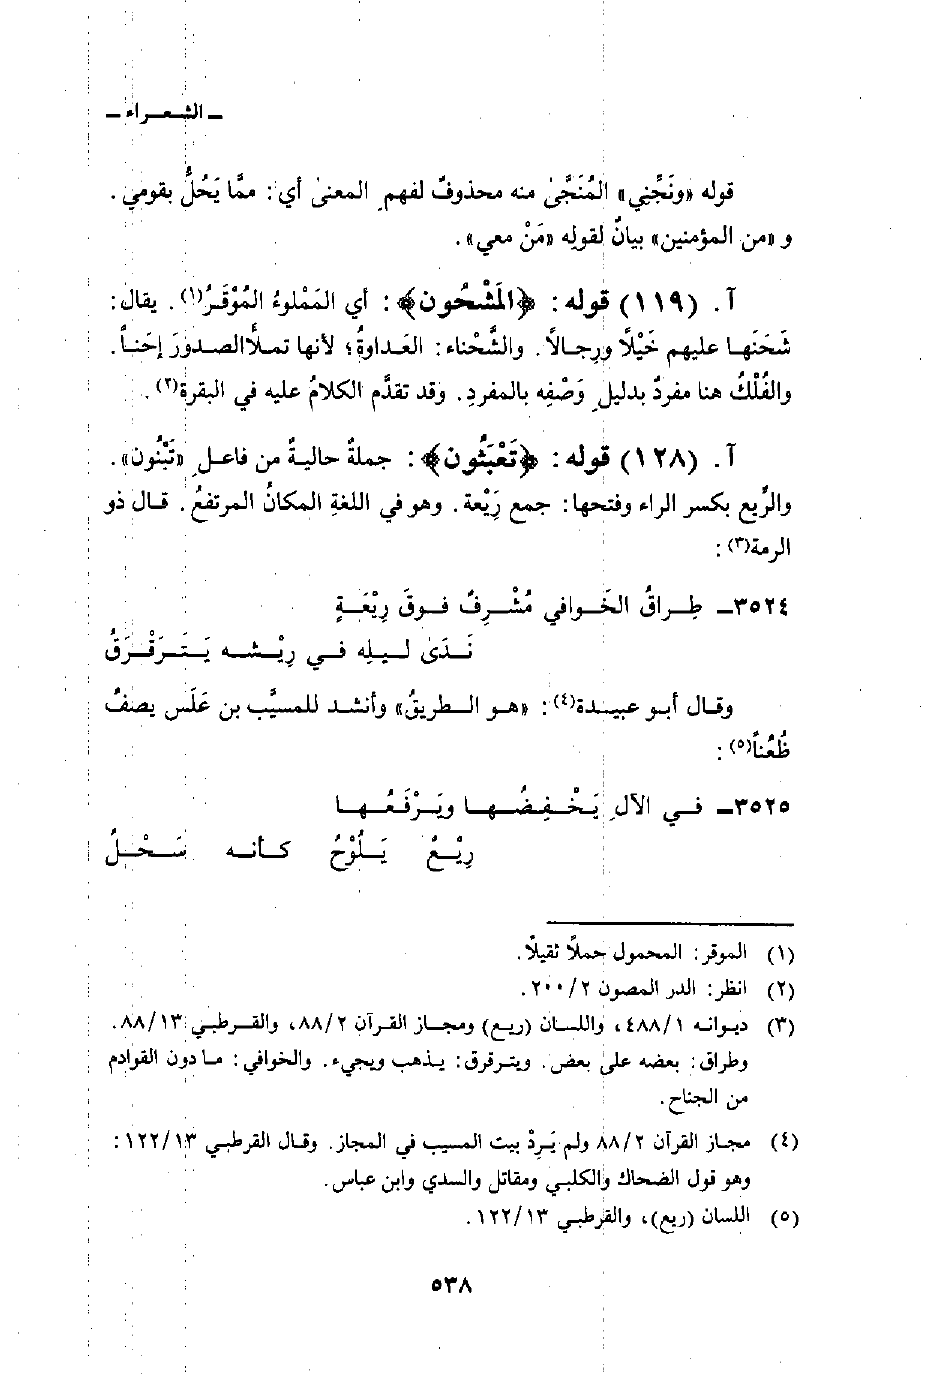 ـ الشعراء ـ
قوله «ونَجِّني» المُنَجَّىٰ منه محذوفٌ لفهمِ المعنىٰ أي: ممَّا يَحُلُّ بقومي.
و «من المؤمنين» بيانٌ لقولِه «مَنْ معي».
آ. (١١٩) قوله: ﴿المَشْحُون﴾: أي المَمْلوءُ المُوْقَرُ(١). يقال:
شَحَنَها عليهم خَيْلًا ورِجالًا. والشَّحْناء: العَداوةُ؛ لأنها تملأُ الصدورَ إحَناً.
والفُلْكُ هنا مفردٌ بدليلِ وَصْفِه بالمفردِ. وقد تقدَّم الكلامُ عليه في البقرة(٢).
آ. (١٢٨) قوله: ﴿تَعْبَثُون﴾: جملةٌ حاليةٌ من فاعلِ «تَبْنُون».
والرِّيع بكسر الراء وفتحها: جمع رَِيْعة. وهو في اللغةِ المكانُ المرتفعُ. قال ذو
الرمة(٣):
٣٥٢٤ـ طِراقُ الخَوافي مُشْرِفٌ فوقَ رِيْعَةٍ
نَدَىٰ ليلِه في رِيْشه يَتَرَقْرَقُ
وقال أبو عبيدة(٤): «هو الطريقُ» وأنشد للمسيَّب بن عَلَس يصفُ
ظُعُناً(٥):
٣٥٢٥ـ في الآلِ يَخْفِضُها ويَرْفَعُها
رِيْعٌ يَلُوْحُ كأنه سَحْلُ
(١) الموقر: المحمول حملًا ثقيلًا.
(٢) انظر: الدر المصون ٢٠٠/٢.
(٣) ديوانه ٤٨٨/١، واللسان (ريع) ومجاز القرآن ٨٨/٢، والقرطبي ٨٨/١٣.
وطراق: بعضه على بعض. ويترقرق: يذهب ويجيء. والخوافي: ما دون القوادم
من الجناح.
(٤) مجاز القرآن ٨٨/٢ ولم يَرِدْ بيت المسيب في المجاز. وقال القرطبي ١٢٢/١٣:
وهو قول الضحاك والكلبي ومقاتل والسدي وابن عباس.
(٥) اللسان (ريع)، والقرطبي ١٢٢/١٣.
٥٣٨